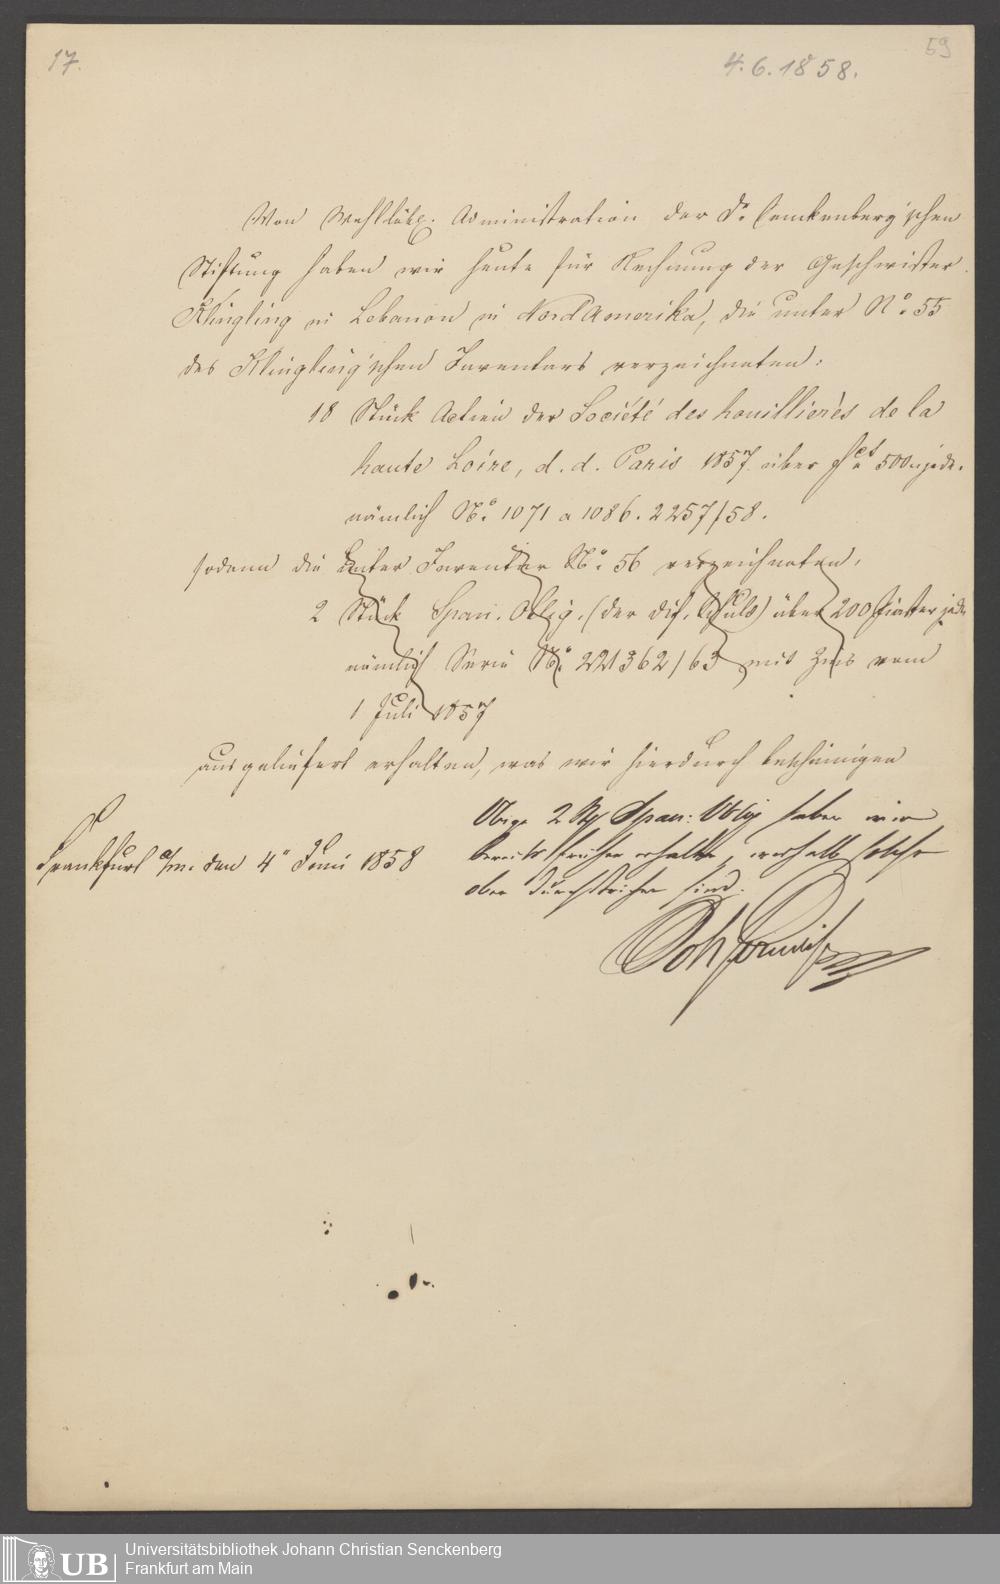 17.
59
4. 6. 1858.
Von Wohllöbl. Administration der Dr. Senckenberg'schen
Stiftung haben wir heute für Rechnung der Geschwister
Klingling in Lebanon in Nord Amerika, die unter No. 55
des Klingling'schen Inventars verzeichneten:
18 Stück Actien der Société des houillierès de la
haute Loire, d. d. Paris 1857. über 500 jede.
nämlich No. 1071 a 1086. 2257/58.
sodann die unter Inventar No. 56 verzeichneten,
2 Stück Span. Oblig. (der dif. Schuld) über 200 Piaster jede
nämlich Serie No. 221362/63 mit Zins vom
1 Juli 1857
ausgeliefert erhalten, was wir hierdurch bescheinigen
Obige 2 Span: Oblig haben wir
Frankfurt a/m. den 4" Juni 1858
bereits früher erhalten, weshalb solche
oben durchstrichen sind.